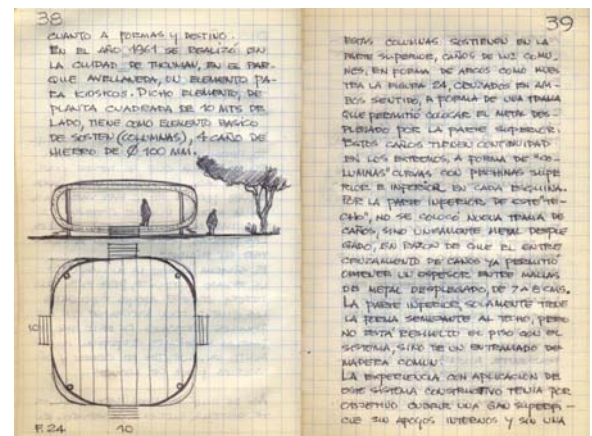 38
CUANTO A FORMAS Y DESTINO.
EN EL AÑO 1961 SE REALIZÓ EN
LA CIUDAD DE TUCUMAN, EN EL PAR-
QUE AVELLANEDA, UN ELEMENTO PA-
RA KIOSKOS. DICHO ELEMENTO, DE
PLANTA CUADRADA DE 10 MTS DE
LADO, TIENE COMO ELEMENTO BASICO
DE SOSTEN (COLUMNAS), 4 CAÑO DE
HIERRO DE Ø 100 MM.
10
F. 24
10
39
ESTAS COLUMNAS SOSTIENEN EN LA
PARTE SUPERIOR, CAÑOS DE LUZ COMU-
NES, EN FORMA DE ARCOS COMO MUES
TRA LA FIGURA 24, CRUZADOS EN AM-
BOS SENTIDO, A FORMA DE UNA TRAMA
QUE PERMITIÓ COLOCAR EL METAL DES-
PLEGADO POR LA PARTE SUPERIOR.
ESTOS CAÑOS TIENEN CONTINUIDAD
EN LOS EXTREMOS, A FORMA DE "CO-
LUMNAS" CURVAS CON PECHINAS SUPE
RIOR E INFERIOR EN CADA ESQUINA.
POR LA PARTE INFERIOR DE ESTE "TE-
CHO", NO SE COLOCÓ NUEVA TRAMA DE
CAÑOS, SINO UNICAMENTE METAL DESPLE
GADO, EN RAZON DE QUE EL ENTRE
CRUZAMIENTO DE CAÑOS YA PERMITIÓ
OBTENER UN ESPESOR ENTRE MALLAS
DE METAL DESPLEGADO, DE 7 A 8 CMS.
LA PARTE INFERIOR, SOLAMENTE TIENE
LA FORMA SEMEJANTE AL TECHO, PERO
NO ESTÁ RESUELTO EL PISO CON EL
SISTEMA, SINO DE UN ENTRAMADO DE
MADERA COMUN
LA EXPERIENCIA CON APLICACION DE
ESTE SISTEMA CONSTRUCTIVO TENIA POR
OBJETIVO CUBRIR UNA GAN SUPERFI-
CIE SIN APOYOS INTERNOS Y SIN UNA